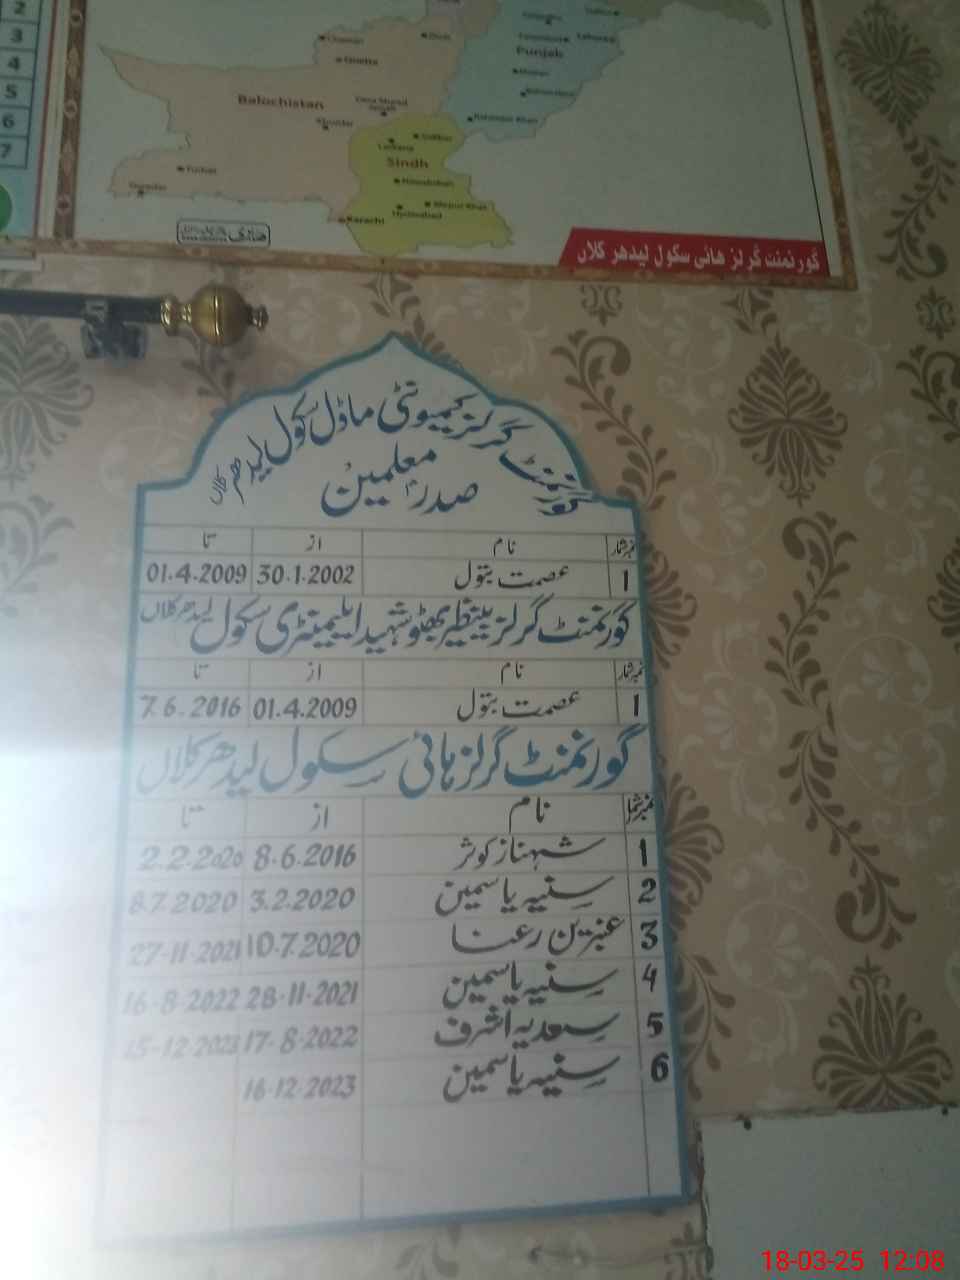 2
3
4
5
6
7
Chaman
Quetta
Balochistan
Khuzdar
Turbat
Gwadar
Punjab
Multan
Bahawalpur
Rahimyar Khan
Sukkur
Larkana
Sindh
Nawabshah
Mirpur Khas
Hyderabad
Karachi
گورنمنٹ گرلز ھائی سکول لیدھر کلاں
گورنمنٹ گرلز کمیونٹی ماڈل سکول لیدھر کلاں
صدر معلمین
نمبر شمار نام از تا
1 عصمت بتول 30.1.2002 01.4.2009
گورنمنٹ گرلز بینظیر بھٹو شہید ایلیمنٹری سکول لیدھر کلاں
نمبر شمار نام از تا
1 عصمت بتول 01.4.2009 7.6.2016
گورنمنٹ گرلز ہائی سکول لیدھر کلاں
نمبر شمار نام از تا
1 شہناز کوثر 8.6.2016 2.2.2020
2 سنیہ یاسمین 3.2.2020 8.7.2020
3 عنبرین رعنا 10.7.2020 27-11-2021
4 سنیہ یاسمین 28-11-2021 16-8-2022
5 سعدیہ اشرف 17-8-2022 15-12-2023
6 سنیہ یاسمین 16-12-2023
18-03-25 12:08